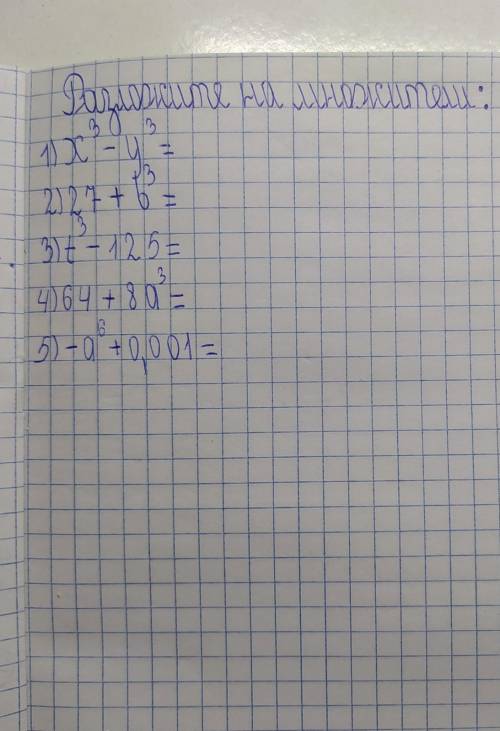 Разложите на множители:
1) x³ - y³ =
2) 27 + b³ =
3) t³ - 125 =
4) 64 + 8a³ =
5) -a⁶ + 0,001 =